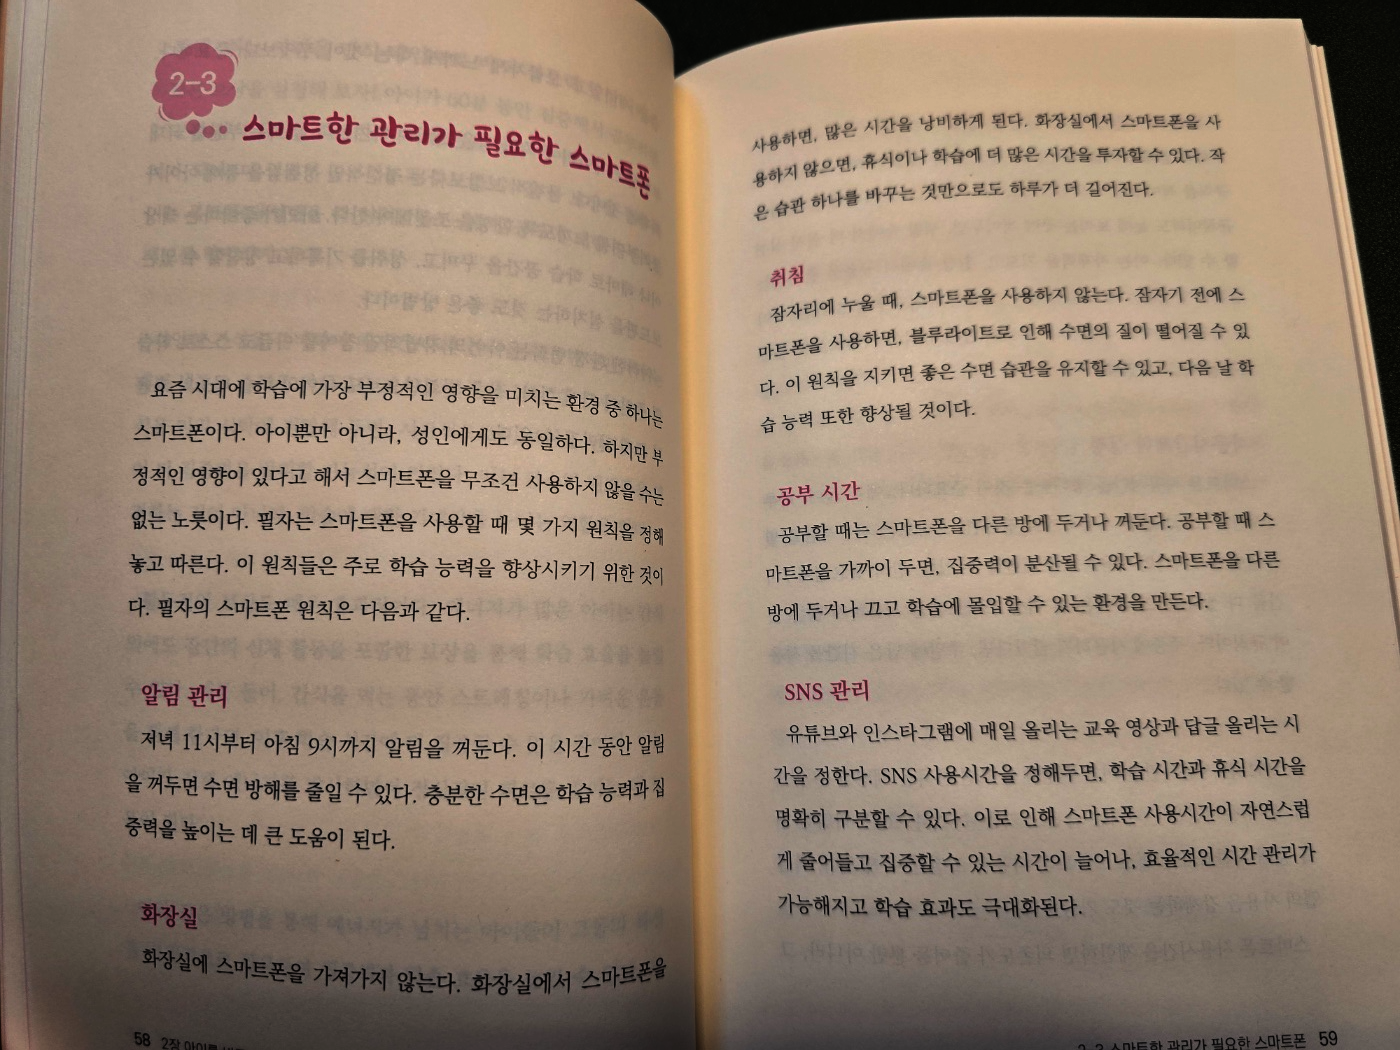 2-3
스마트한 관리가 필요한 스마트폰
요즘 시대에 학습에 가장 부정적인 영향을 미치는 환경 중 하나는
스마트폰이다. 아이뿐만 아니라, 성인에게도 동일하다. 하지만 부
정적인 영향이 있다고 해서 스마트폰을 무조건 사용하지 않을 수는
없는 노릇이다. 필자는 스마트폰을 사용할 때 몇 가지 원칙을 정해
놓고 따른다. 이 원칙들은 주로 학습 능력을 향상시키기 위한 것이
다. 필자의 스마트폰 원칙은 다음과 같다.
알림 관리
저녁 11시부터 아침 9시까지 알림을 꺼둔다. 이 시간 동안 알림
을 꺼두면 수면 방해를 줄일 수 있다. 충분한 수면은 학습 능력과 집
중력을 높이는 데 큰 도움이 된다.
화장실
화장실에 스마트폰을 가져가지 않는다. 화장실에서 스마트폰을
58 2장 아이를
사용하면, 많은 시간을 낭비하게 된다. 화장실에서 스마트폰을 사
용하지 않으면, 휴식이나 학습에 더 많은 시간을 투자할 수 있다. 작
은 습관 하나를 바꾸는 것만으로도 하루가 더 길어진다.
취침
잠자리에 누울 때, 스마트폰을 사용하지 않는다. 잠자기 전에 스
마트폰을 사용하면, 블루라이트로 인해 수면의 질이 떨어질 수 있
다. 이 원칙을 지키면 좋은 수면 습관을 유지할 수 있고, 다음 날 학
습 능력 또한 향상될 것이다.
공부 시간
공부할 때는 스마트폰을 다른 방에 두거나 꺼둔다. 공부할 때 스
마트폰을 가까이 두면, 집중력이 분산될 수 있다. 스마트폰을 다른
방에 두거나 끄고 학습에 몰입할 수 있는 환경을 만든다.
SNS 관리
유튜브와 인스타그램에 매일 올리는 교육 영상과 답글 올리는 시
간을 정한다. SNS 사용시간을 정해두면, 학습 시간과 휴식 시간을
명확히 구분할 수 있다. 이로 인해 스마트폰 사용시간이 자연스럽
게 줄어들고 집중할 수 있는 시간이 늘어나, 효율적인 시간 관리가
가능해지고 학습 효과도 극대화된다.
2-3 스마트한 관리가 필요한 스마트폰 59